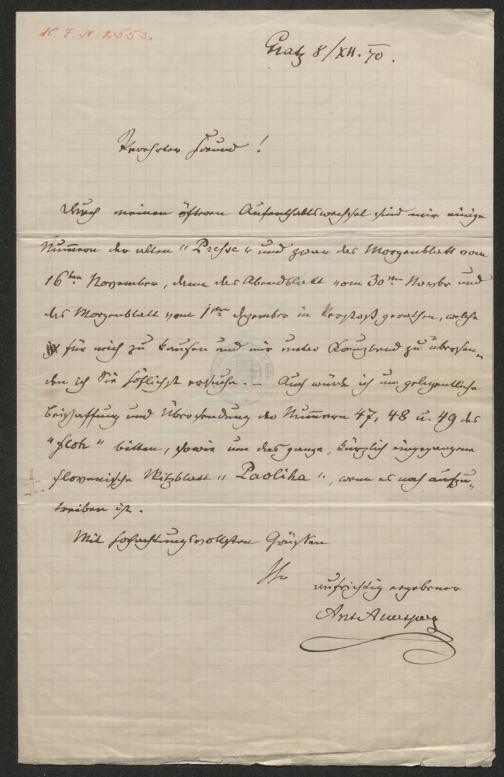 K. F. N. 2553.
Gratz 8/XII. 70.
Verehrter Freund!
Durch meinen öfteren Aufenthaltswechsel sind mir einige
Nummern der alten „Presse“ und zwar das Morgenblatt vom
16ten November, dann das Abendblatt vom 30ten Novbr und
das Morgenblatt vom 1ten Dezember in Verstoß gerathen, welche
für mich zu kaufen und mir unter Kreuzband zu übersen-
den ich Sie höflichst ersuche. – Auch würde ich um gelegentliche
Beischaffung und Übersendung der Nummern 47, 48 u. 49 des
"Floh" bitten, sowie um das ganze, kürzlich eingegangene
slovenische Witzblatt „Pavliha“, wenn es noch aufzu-
treiben ist.
Mit hochachtungsvollsten Grüßen
Ihr
aufrichtig ergebener
Ant Auersperg